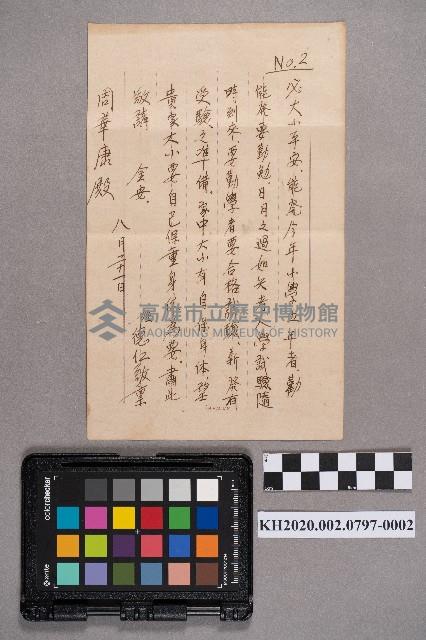 No.2
必大小平安、能発今年小學五年者、勤
能発要勤勉、日月之過如矢、者學試驗隨
時到來、要勤學者要合格試驗、新発有
受驗之準備、家中大小有自保身体、
貴家大小要自己保重身体為要肅此
敬請 金安、
德仁敬稟
八月二十一日
周華康殿
高雄市立歷史博物館
KAOHSIUNG MUSEUM OF HISTORY
colorchecker
x-rite
KH2020.002.0797-0002